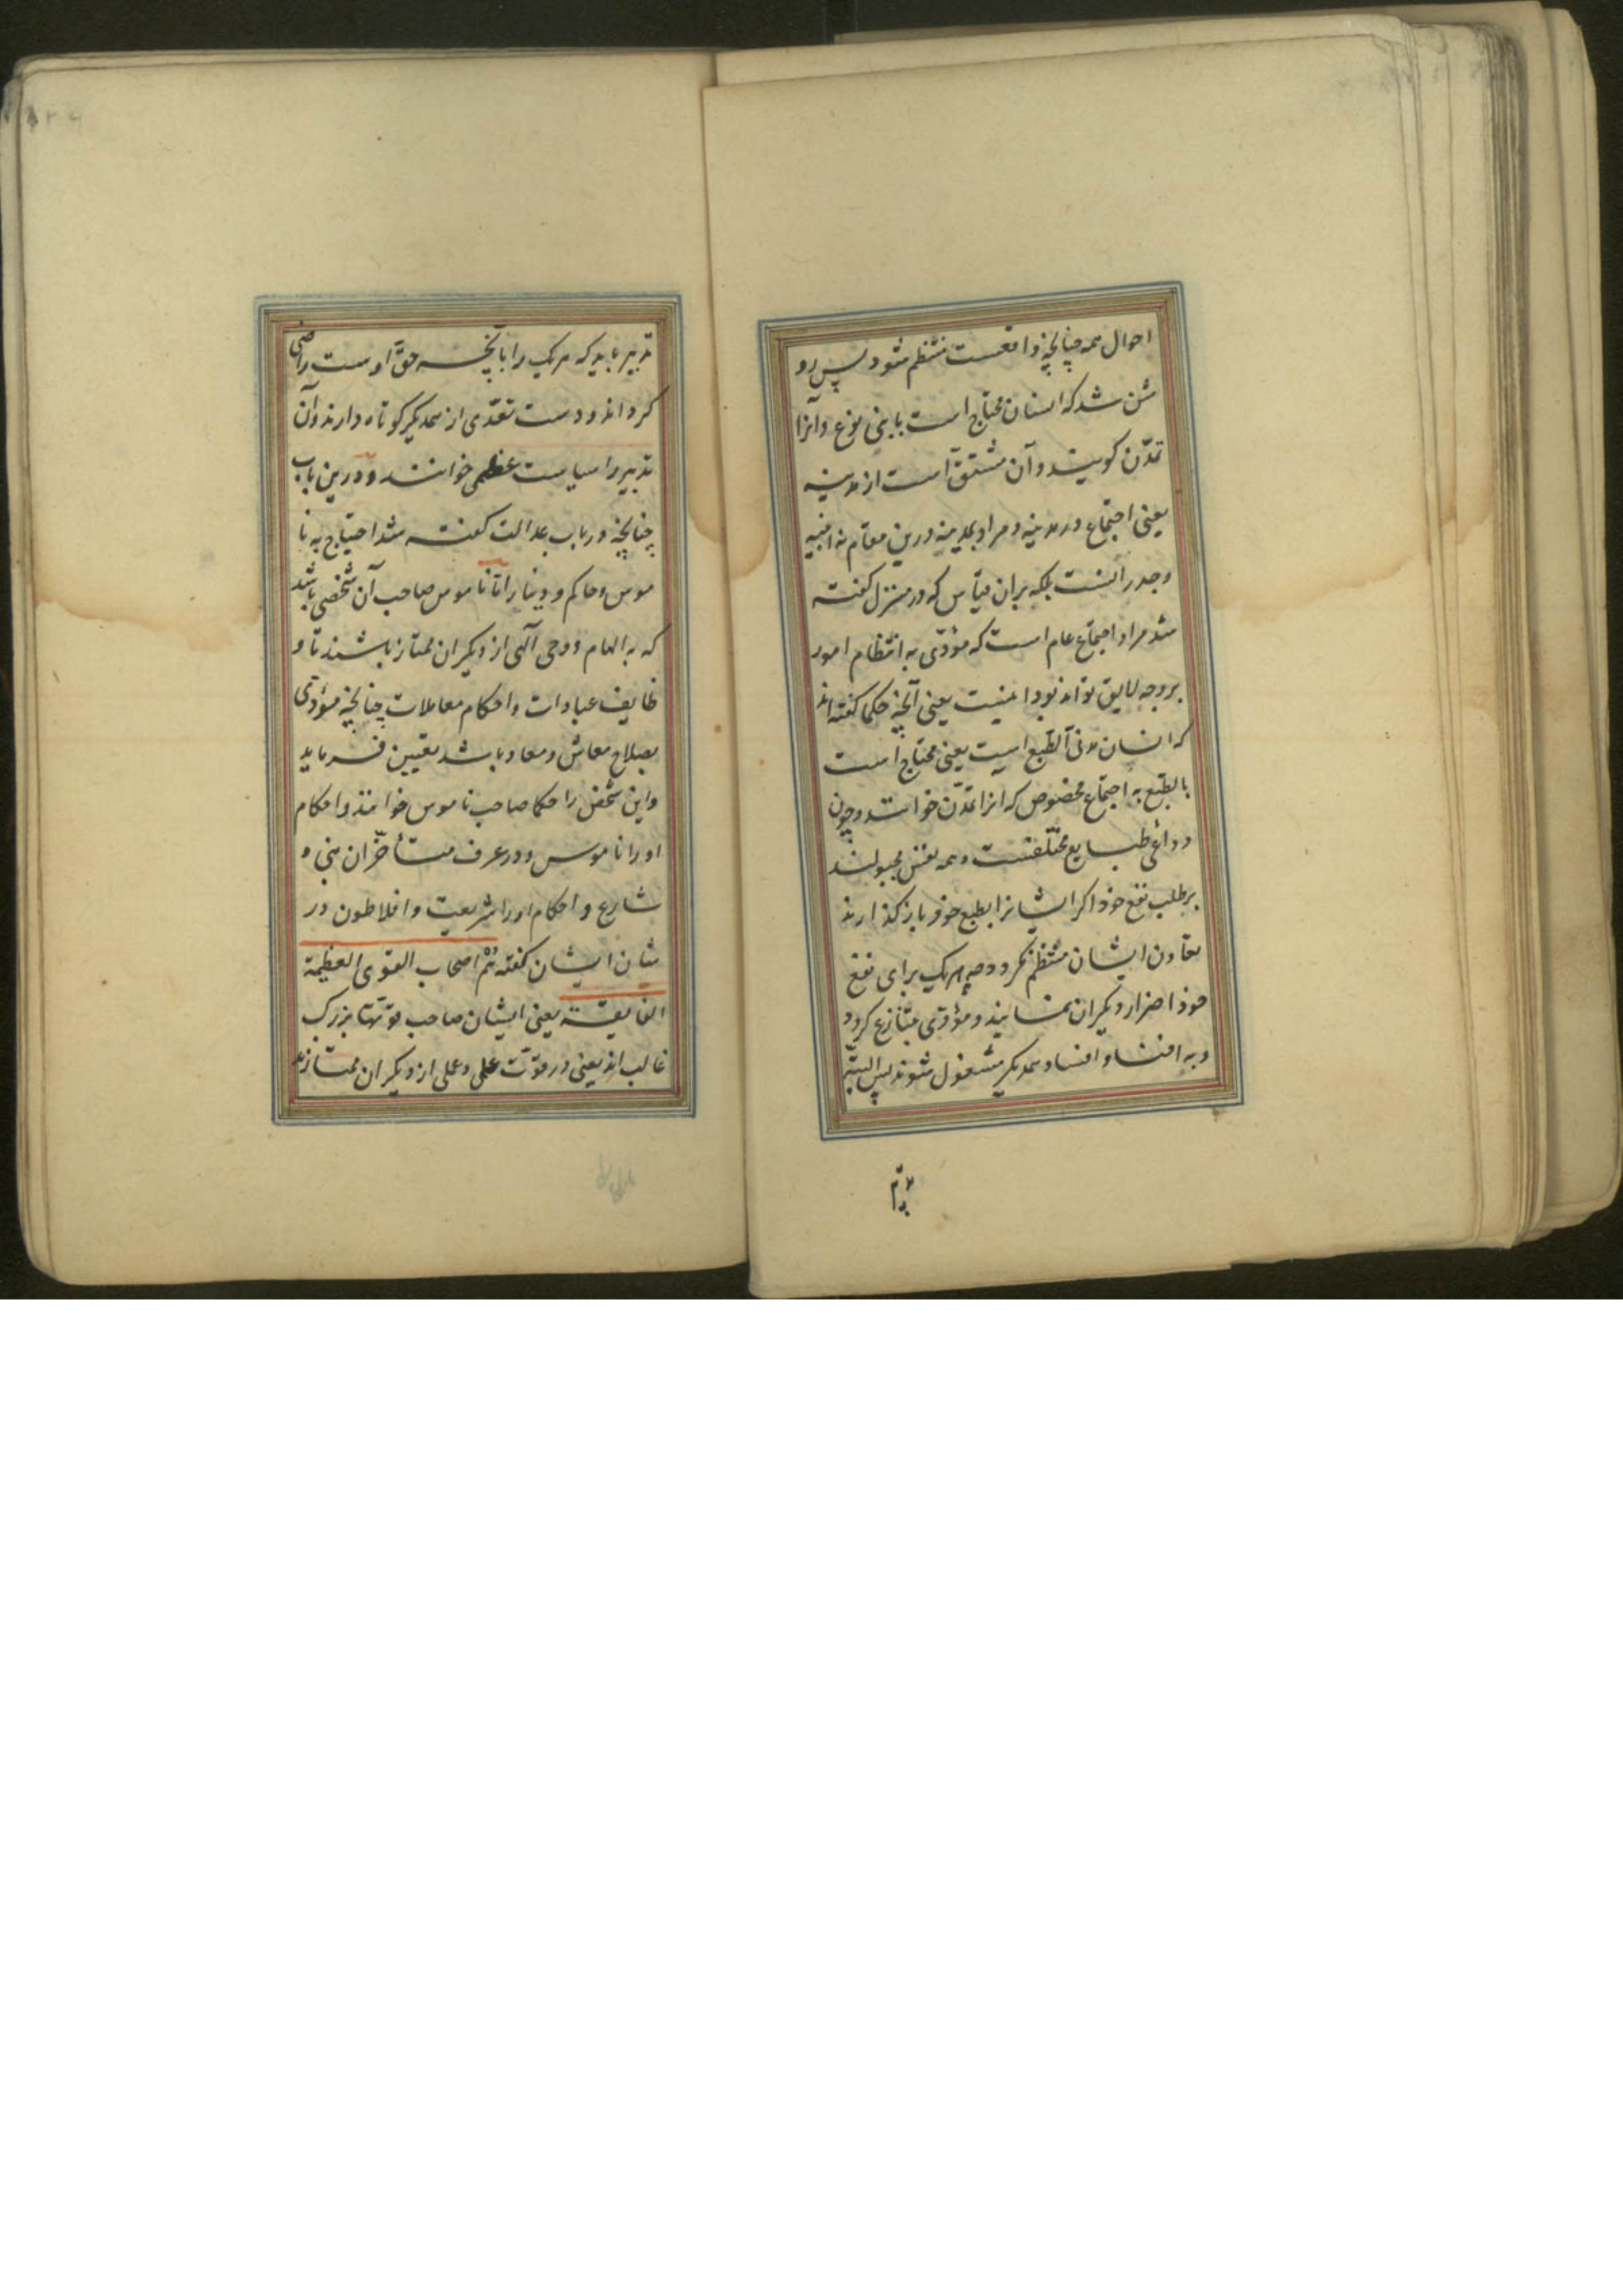 احوال همه چنانچه واقعست منتظم شود پس رو
شن شد که انسان محتاج است با بنی نوع وآنرا
تمدّن کویند وآن مشتق است از مدینه
یعنی اجتماع در مدینه ومراد بمدینه درین مقام نه ابنیه
وجدرانست بلکه بران قیاس که در منزل کفته
شد مراد اجتماع عام است که مؤدّی به انتظام امور
بر وجه لایق تواند بود اینست یعنی آنچه حکما کفته اند
که انسان مدنی الطبع است یعنی محتاج است
بالطبع به اجتماع مخصوص که انرا تمدّن خوانند وچون
دواعی طبایع مختلفست وهمه نفس مجبولند
بر طلب نفع خود اکر ایشانرا بطبع خود باز کذارند
تعاون ایشان منتظم نکردد چه هریک برای نفع
خود اضرار دیکران نمایند ومؤدّی بتنازع کردد
وبه افنا وافساد همدیکر مشغول شوند پس البته
تدبیر باید که هریک را بآنچه حقّ اوست راضی
کرداند ودست تعدّی از همدیکر کوتاه دارند وآن
تدبیر را سیاست عظمی خوانند ودرین باب
چنانچه در باب عدالت کفته شد احتیاج به نا
موس وحاکم ودینار امّا ناموس صاحب آن شخصی باشد
که به الهام ووحی آلهی از دیکران ممتاز باشند تا و
ظایف عبادات واحکام معاملات چنانچه مؤدّی
بصلاح معاش ومعاد باشد تعیین فرماید
واین شخص را حکما صاحب ناموس خوانند واحکام
او را ناموس ودر عرف متأخّران نبی و
شارع واحکام او را شریعت وافلاطون در
شان ایشان کفته هُمْ اصحاب القوی العظیمة
الفایقة یعنی ایشان صاحب قوّتها بزرک
غالب اند یعنی در قوّت علمی وعملی از دیکران ممتازند